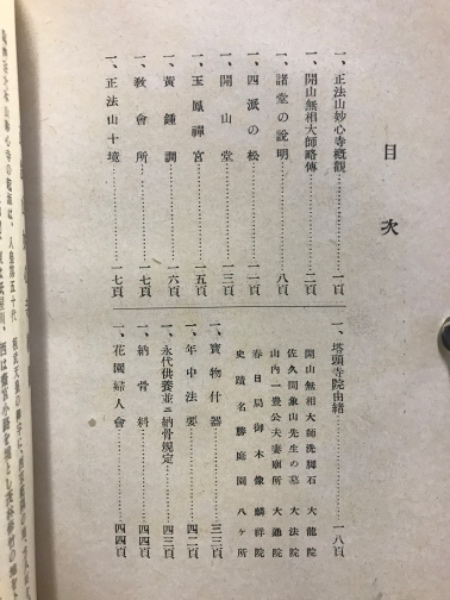 目次
一、正法山妙心寺概觀……一頁
一、開山無相大師略傳……二頁
一、諸堂の說明……八頁
一、四派の松……一一頁
一、開山堂……一三頁
一、玉鳳禪宮……一五頁
一、黃鍾調……一六頁
一、敎會所……一七頁
一、正法山十境……一七頁
一、塔頭寺院由緒……一八頁
開山無相大師洗脚石 大龍院
佐久間象山先生の墓 大法院
山内一豊公夫妻廟所 大通院
春日局御木像 麟祥院
史蹟名勝庭園 八ヶ所
一、寶物什器……三三頁
一、年中法要……四二頁
一、永代供養並ニ納骨規定……四三頁
一、納骨料……四四頁
一、花園婦人會……四四頁